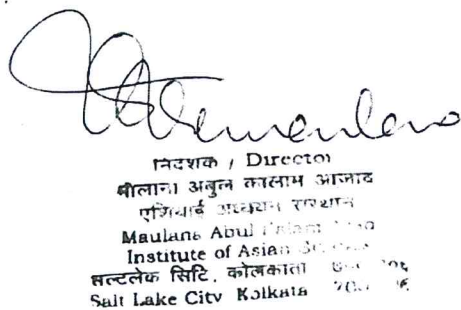 निदेशक / Director
मौलाना अबुल कालाम आजाद
एशियाई अध्ययन संस्थान
Maulana Abul
Institute of Asian
सल्टलेक सिटि, कोलकाता
Salt Lake City Kolkata